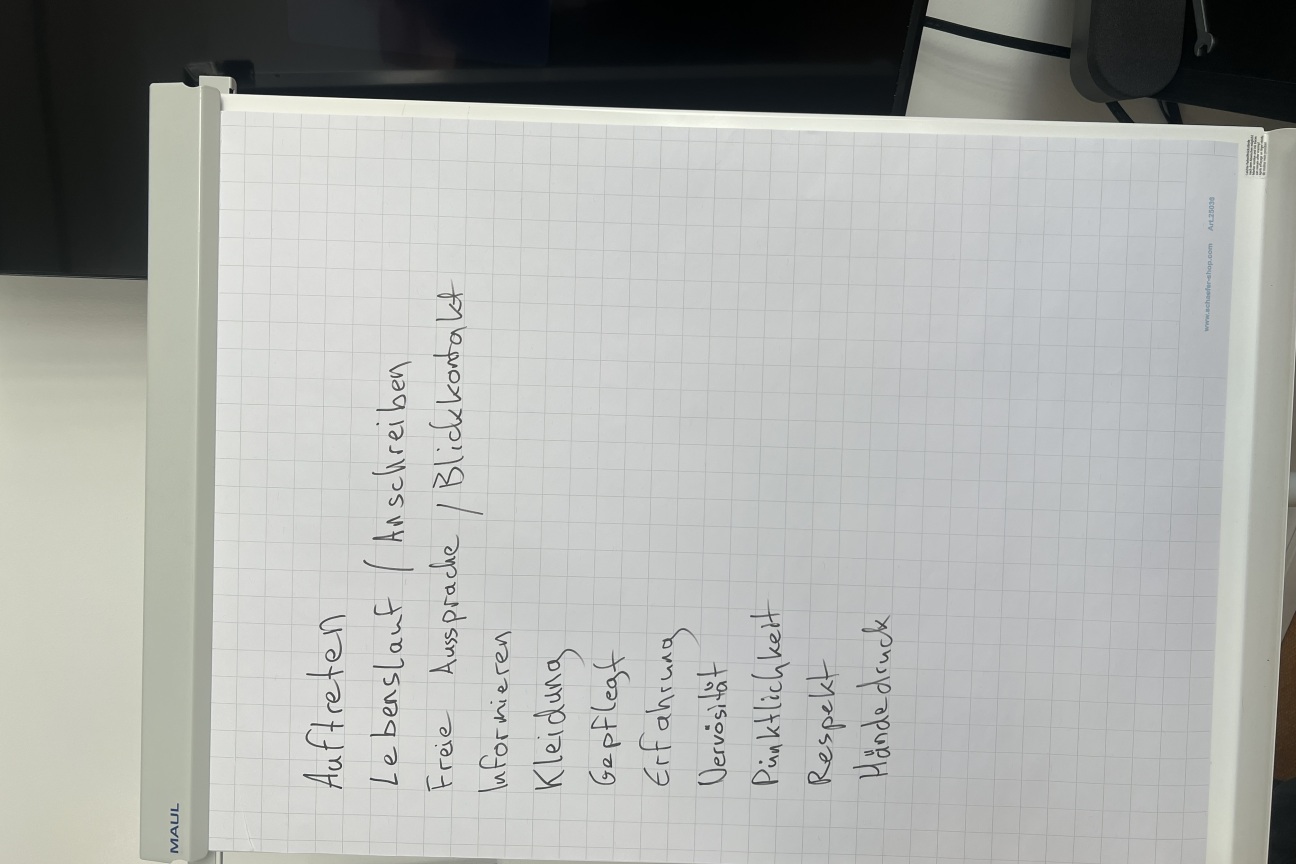 MAUL
Auftreten
Lebenslauf / Anschreiben
Freie Aussprache / Blickkontakt
Informieren
Kleidung
Gepflegt
Erfahrung
Nervösität
Pünktlichkeit
Respekt
Händedruck
www.schaefer-shop.com Art.25036